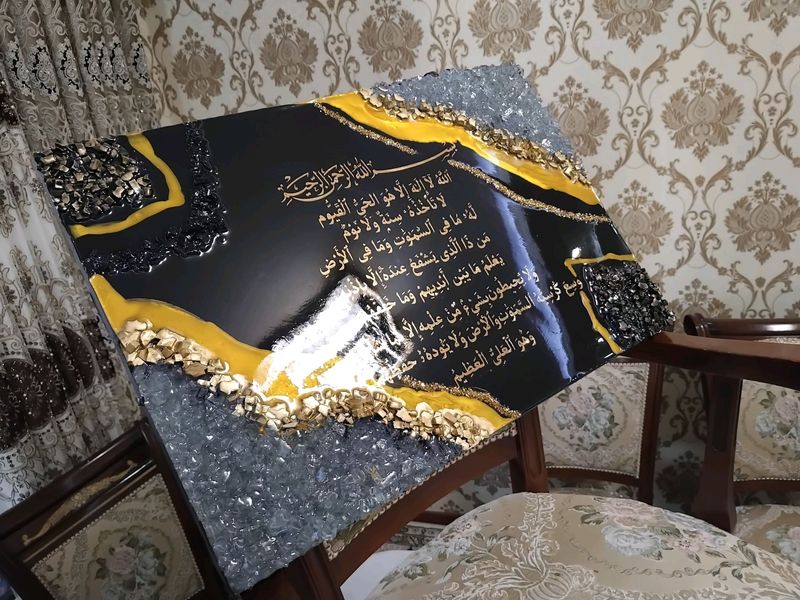 بسم الله الرحمن الرحيم
اللَّهُ لَا إِلَٰهَ إِلَّا هُوَ الْحَيُّ الْقَيُّومُ
لَا تَأْخُذُهُ سِنَةٌ وَلَا نَوْمٌ
لَهُ مَا فِي السَّمَٰوَٰتِ وَمَا فِي الْأَرْضِ
مَن ذَا الَّذِي يَشْفَعُ عِندَهُ إِلَّا
يَعْلَمُ مَا بَيْنَ أَيْدِيهِمْ وَمَا
وَلَا يُحِيطُونَ بِشَيْءٍ مِّنْ عِلْمِهِ إِلَّا
وَسِعَ كُرْسِيُّهُ السَّمَٰوَٰتِ وَالْأَرْضَ وَلَا يَئُودُهُ
وَهُوَ الْعَلِيُّ الْعَظِيمُ